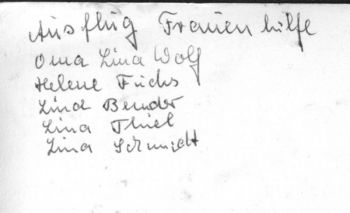 Ausflug Frauenhilfe
Oma Lina Wolf
Helene Fuchs
Lina Bender
Lina Thiel
Lina Schmidt